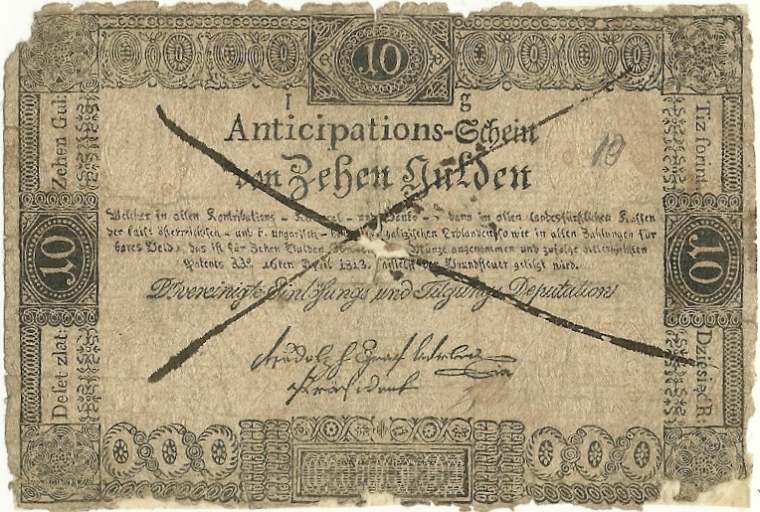 10
I g
Anticipations-Schein
von Zehen Gulden
10
Welcher in allen Kontributions - Kameral - und Banko - , dann in allen landesfürstlichen Kassen
der kais. österreichisch - und k. ungarisch - galizischen Erblanden, so wie in allen Zahlungen für
bares Geld, das ist für Zehen Gulden Münze angenommen und zufolge allerhöchsten
Patents dd. 16ten April 1813. mittelst der Grundsteuer getilgt wird.
Die vereinigte Einlösungs und Tilgungs Deputation
Präsident
Zehen Gul:
10
Deset zlat:
Tiz forint.
10
Dziesięć R: